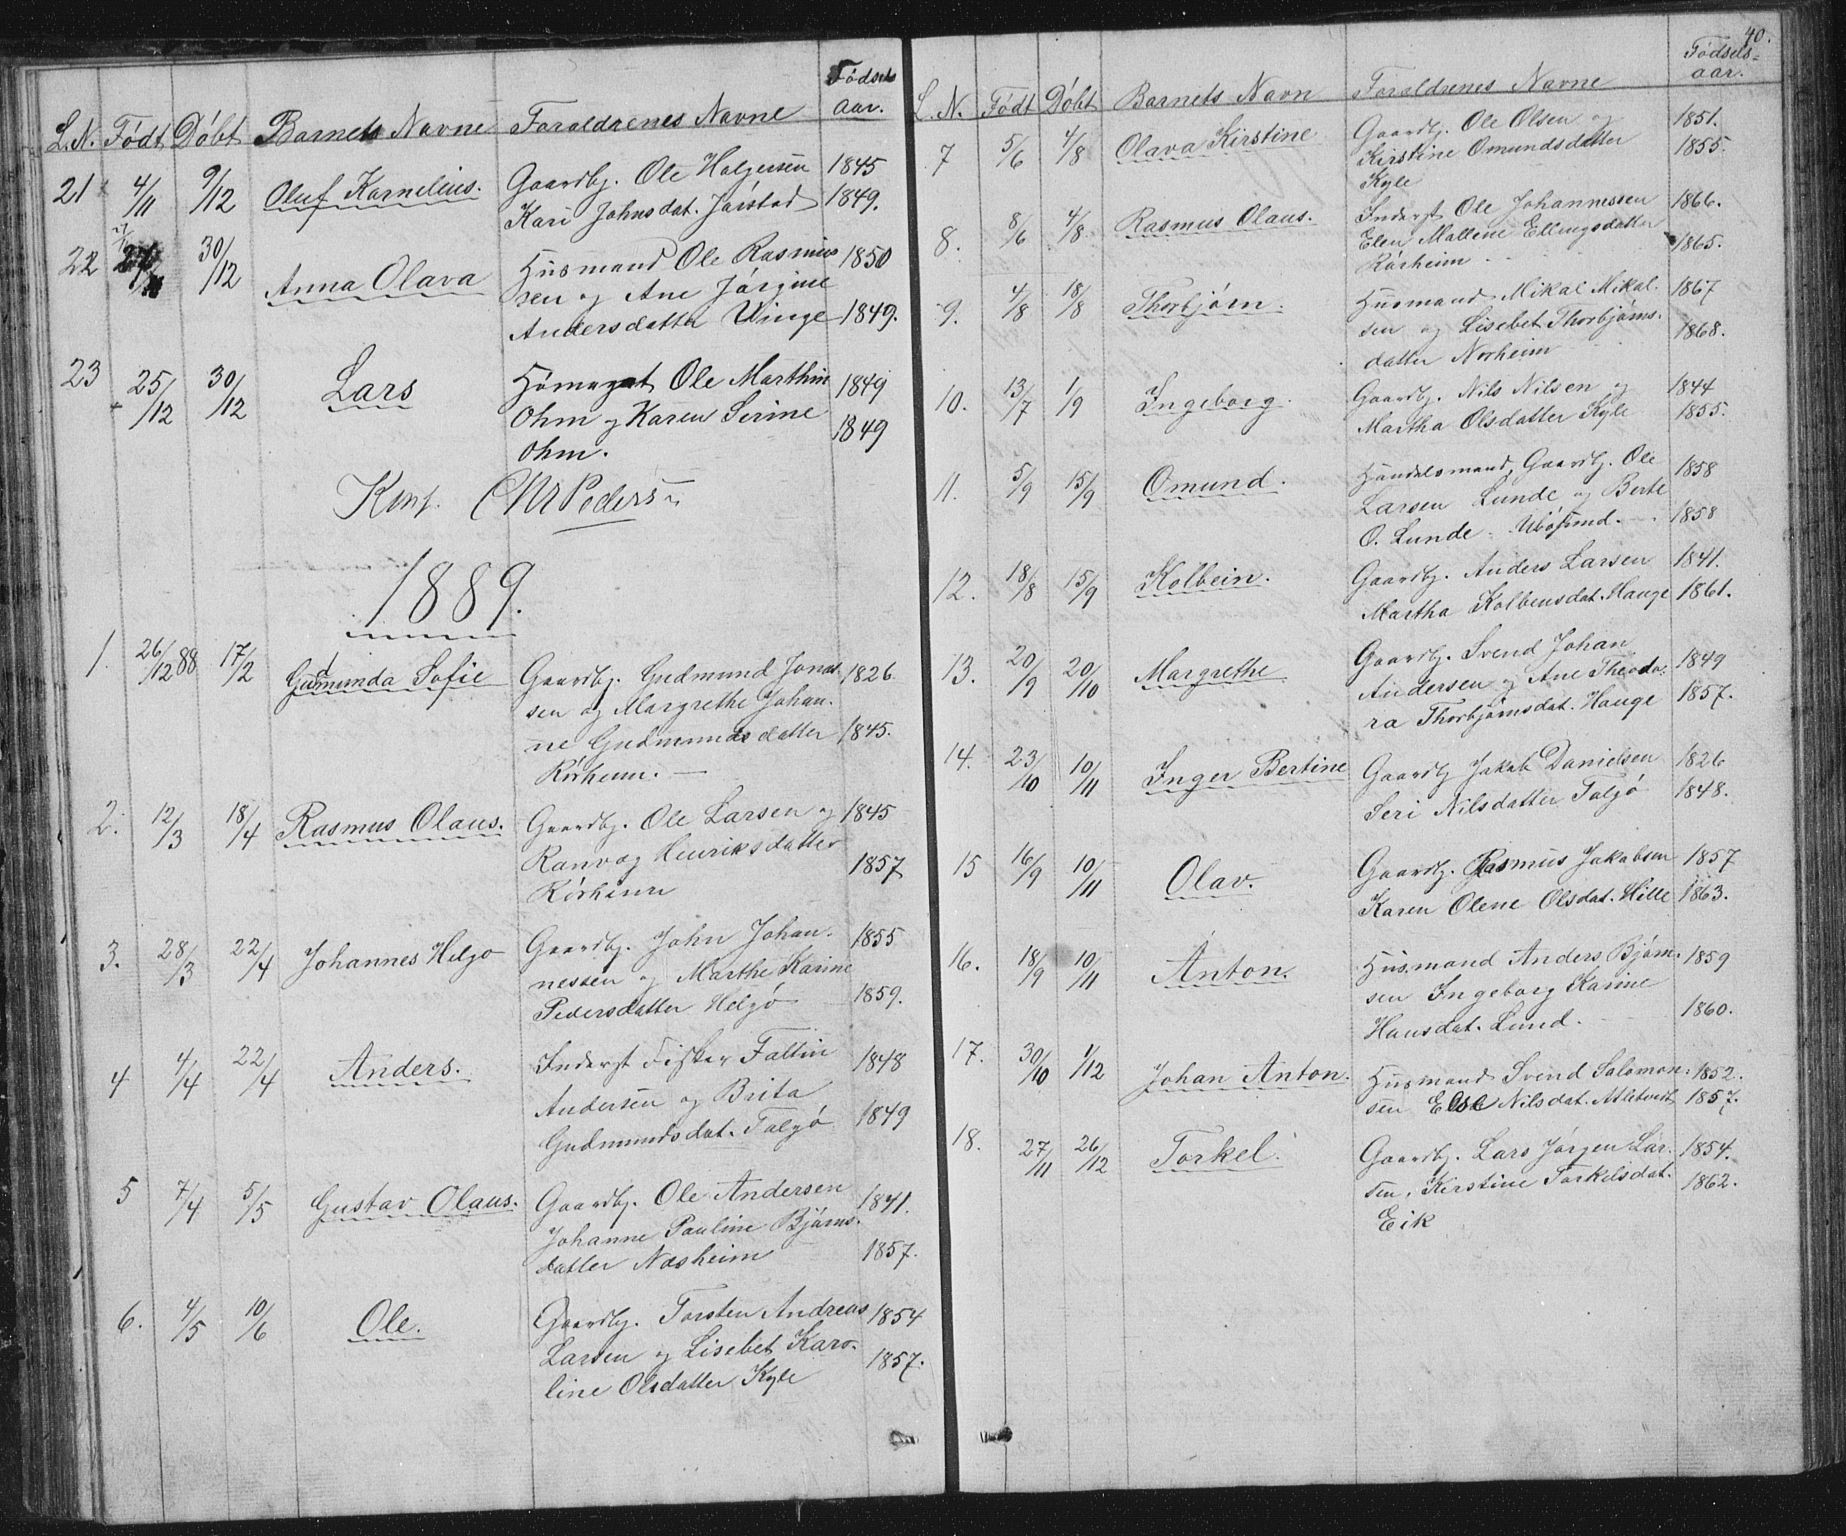 L.N. Født Døbt Barnets Navne Forældrenes Navne Fødsels aar.
21 4/11 9/12 Oluf Kornelius. Gaardbr. Ole Holgersen 1845
Kari Johnsdat. Jørstad 1849.
22 30/12 Anna Olava Husmand Ole Rasmus 1850
sen og Ane Jørgine
Andersdatter Vinge 1849.
23 25/12 30/12 Lars Ole Marthin 1849
Ohm og Karen Serine
Ohm. 1849
Konf. Chr Pedersen
1889.
1. 26/12 88 17/2 Gudmunda Sofie Gaardbr. Gudmund Jonas 1826
sen og Margrethe Johan.
ne Gudmundsdatter 1845.
Rørheim. —
2. 12/3 18/4 Rasmus Olaus. Gaardbr. Ole Larsen og 1845
Ranvæg Henriksdatter
Rørheim 1857
3. 28/3 22/4 Johannes Helgø Gaardbr. John Johan. 1855
nessen og Marthe Karine
Pedersdatter Helgø 1859.
4 4/4 22/4 Anders. Inderst Fisker Faltin 1848
Andersen og Brita
Gudmundsdat. Talgø 1849
5 7/4 5/5 Gustav Olaus. Gaardbr. Ole Andersen 1841.
Johanne Pauline Bjørns.
datter Næsheim 1857.
6. 4/5 10/6 Ole. Gaardbr. Torsten Andreas 1854
Larsen og Lisebet Karo-
line Olsdatter Kyle 1857.
40.
L.N. Født Døbt Barnets Navn Forældrenes Navne Fødsels=
aar.
7 5/6 4/8 Olava Kirstine Gaardbr. Ole Olsen og 1851.
Kirstine Omundsdatter 1855.
Kyle
8. 8/6 4/8 Rasmus Olaus. Inderst Ole Johannessen 1866.
Elen Mallene Ellingsdatter
Rørheim 1865.
9. 4/8 18/8 Thorbjørn. Husmand Mikal Mikal. 1867
sen og Lisebet Thorbjørns.
datter Norheim 1868.
10. 13/7 1/9 Ingeborg. Gaardbr. Nils Nilsen og 1844
Martha Olsdatter Kyle 1855.
11. 5/9 15/9 Omund. Handelsmand, Gaardbr. Ole 1858
Larsen Lunde og Berte
O. Lunde 1858
12. 18/8 15/9 Kolbein. Gaardbr. Anders Larsen 1841.
Martha Kolbensdat. Hauge 1861.
13. 20/9 20/10 Margrethe Gaardbr. Svend Johan
Andersen og Ane Theodo. 1849
ra Thorbjørnsdat. Hauge 1857.
14. 23/10 10/11 Inger Bertine Gaardbr. Jakob Danielsen 1826
Seri Nilsdatter Talgø 1848.
15 16/9 10/11 Olav. Gaardbr. Rasmus Jakobsen 1857
Karen Olene Olsdat. Hille 1863.
16. 18/9 10/11 Anton. Husmand Anders Bjørn. 1859
sen Ingeborg Karine
Hansdat. Lund. 1860.
17. 30/10 1/12 Johan Anton. Husmand Svend Salomon. 1852.
sen Else Nilsdat. 1857.
18. 27/11 26/12 Torkel. Gaardbr. Lars Jørgen Lar. 1854.
sen, Kirstine Torkelsdat. 1862.
Eik